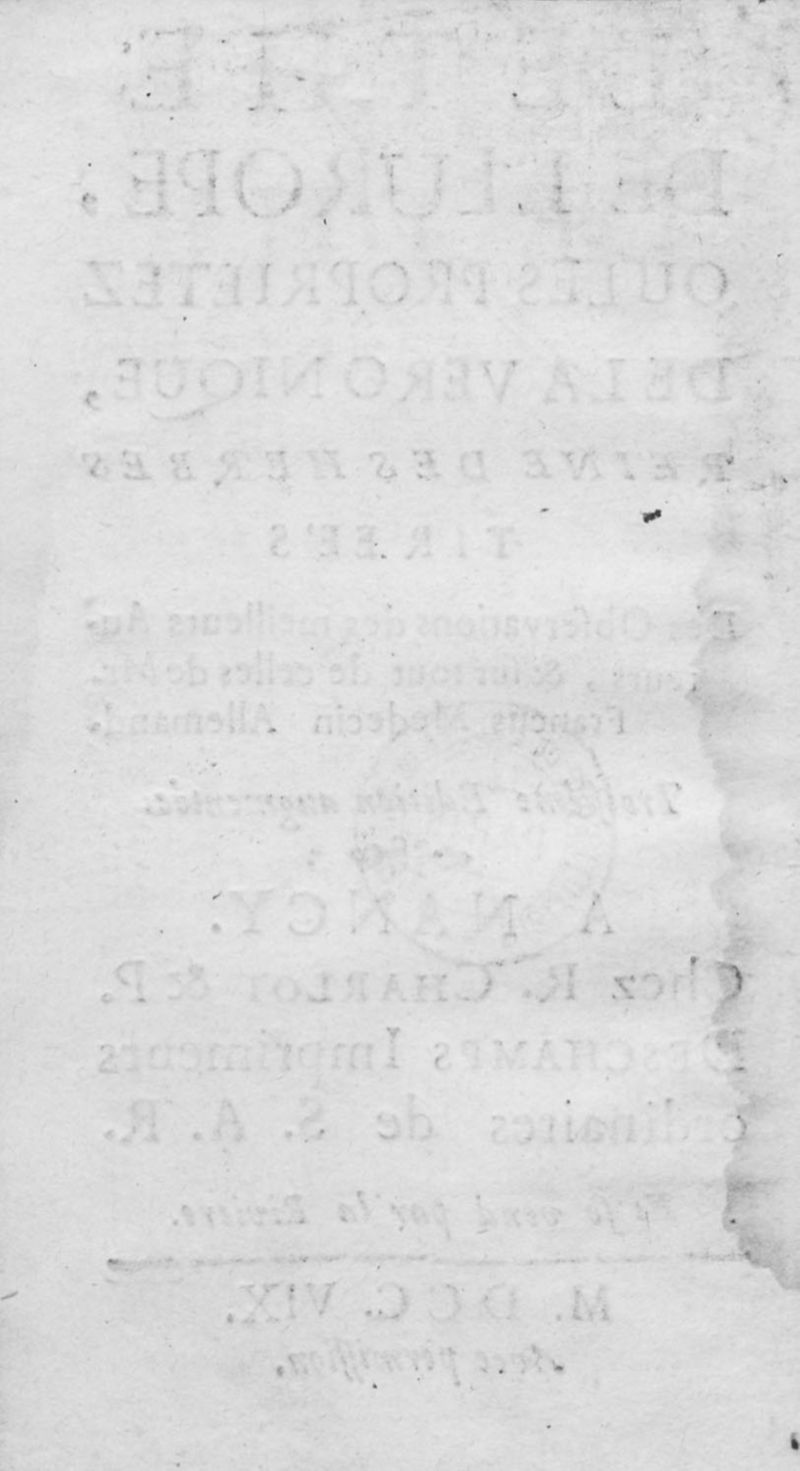 DE L'EUROPE,
OU LES PROPRIETEZ
DE LA VERONIQUE,
REINE DES HERBES
TIRE'ES
Des Observations des meilleurs Au-
teurs, & sur tout de celles de Mr.
Francus Medecin Allemand.
Edition augmentée.
A NANCY.
Chez R. CHARLOT & P.
DESCHAMPS Imprimeurs
ordinaires de S. A. R.
se vend par la Riviere.
M. DCC. VIX.
Avec permission.